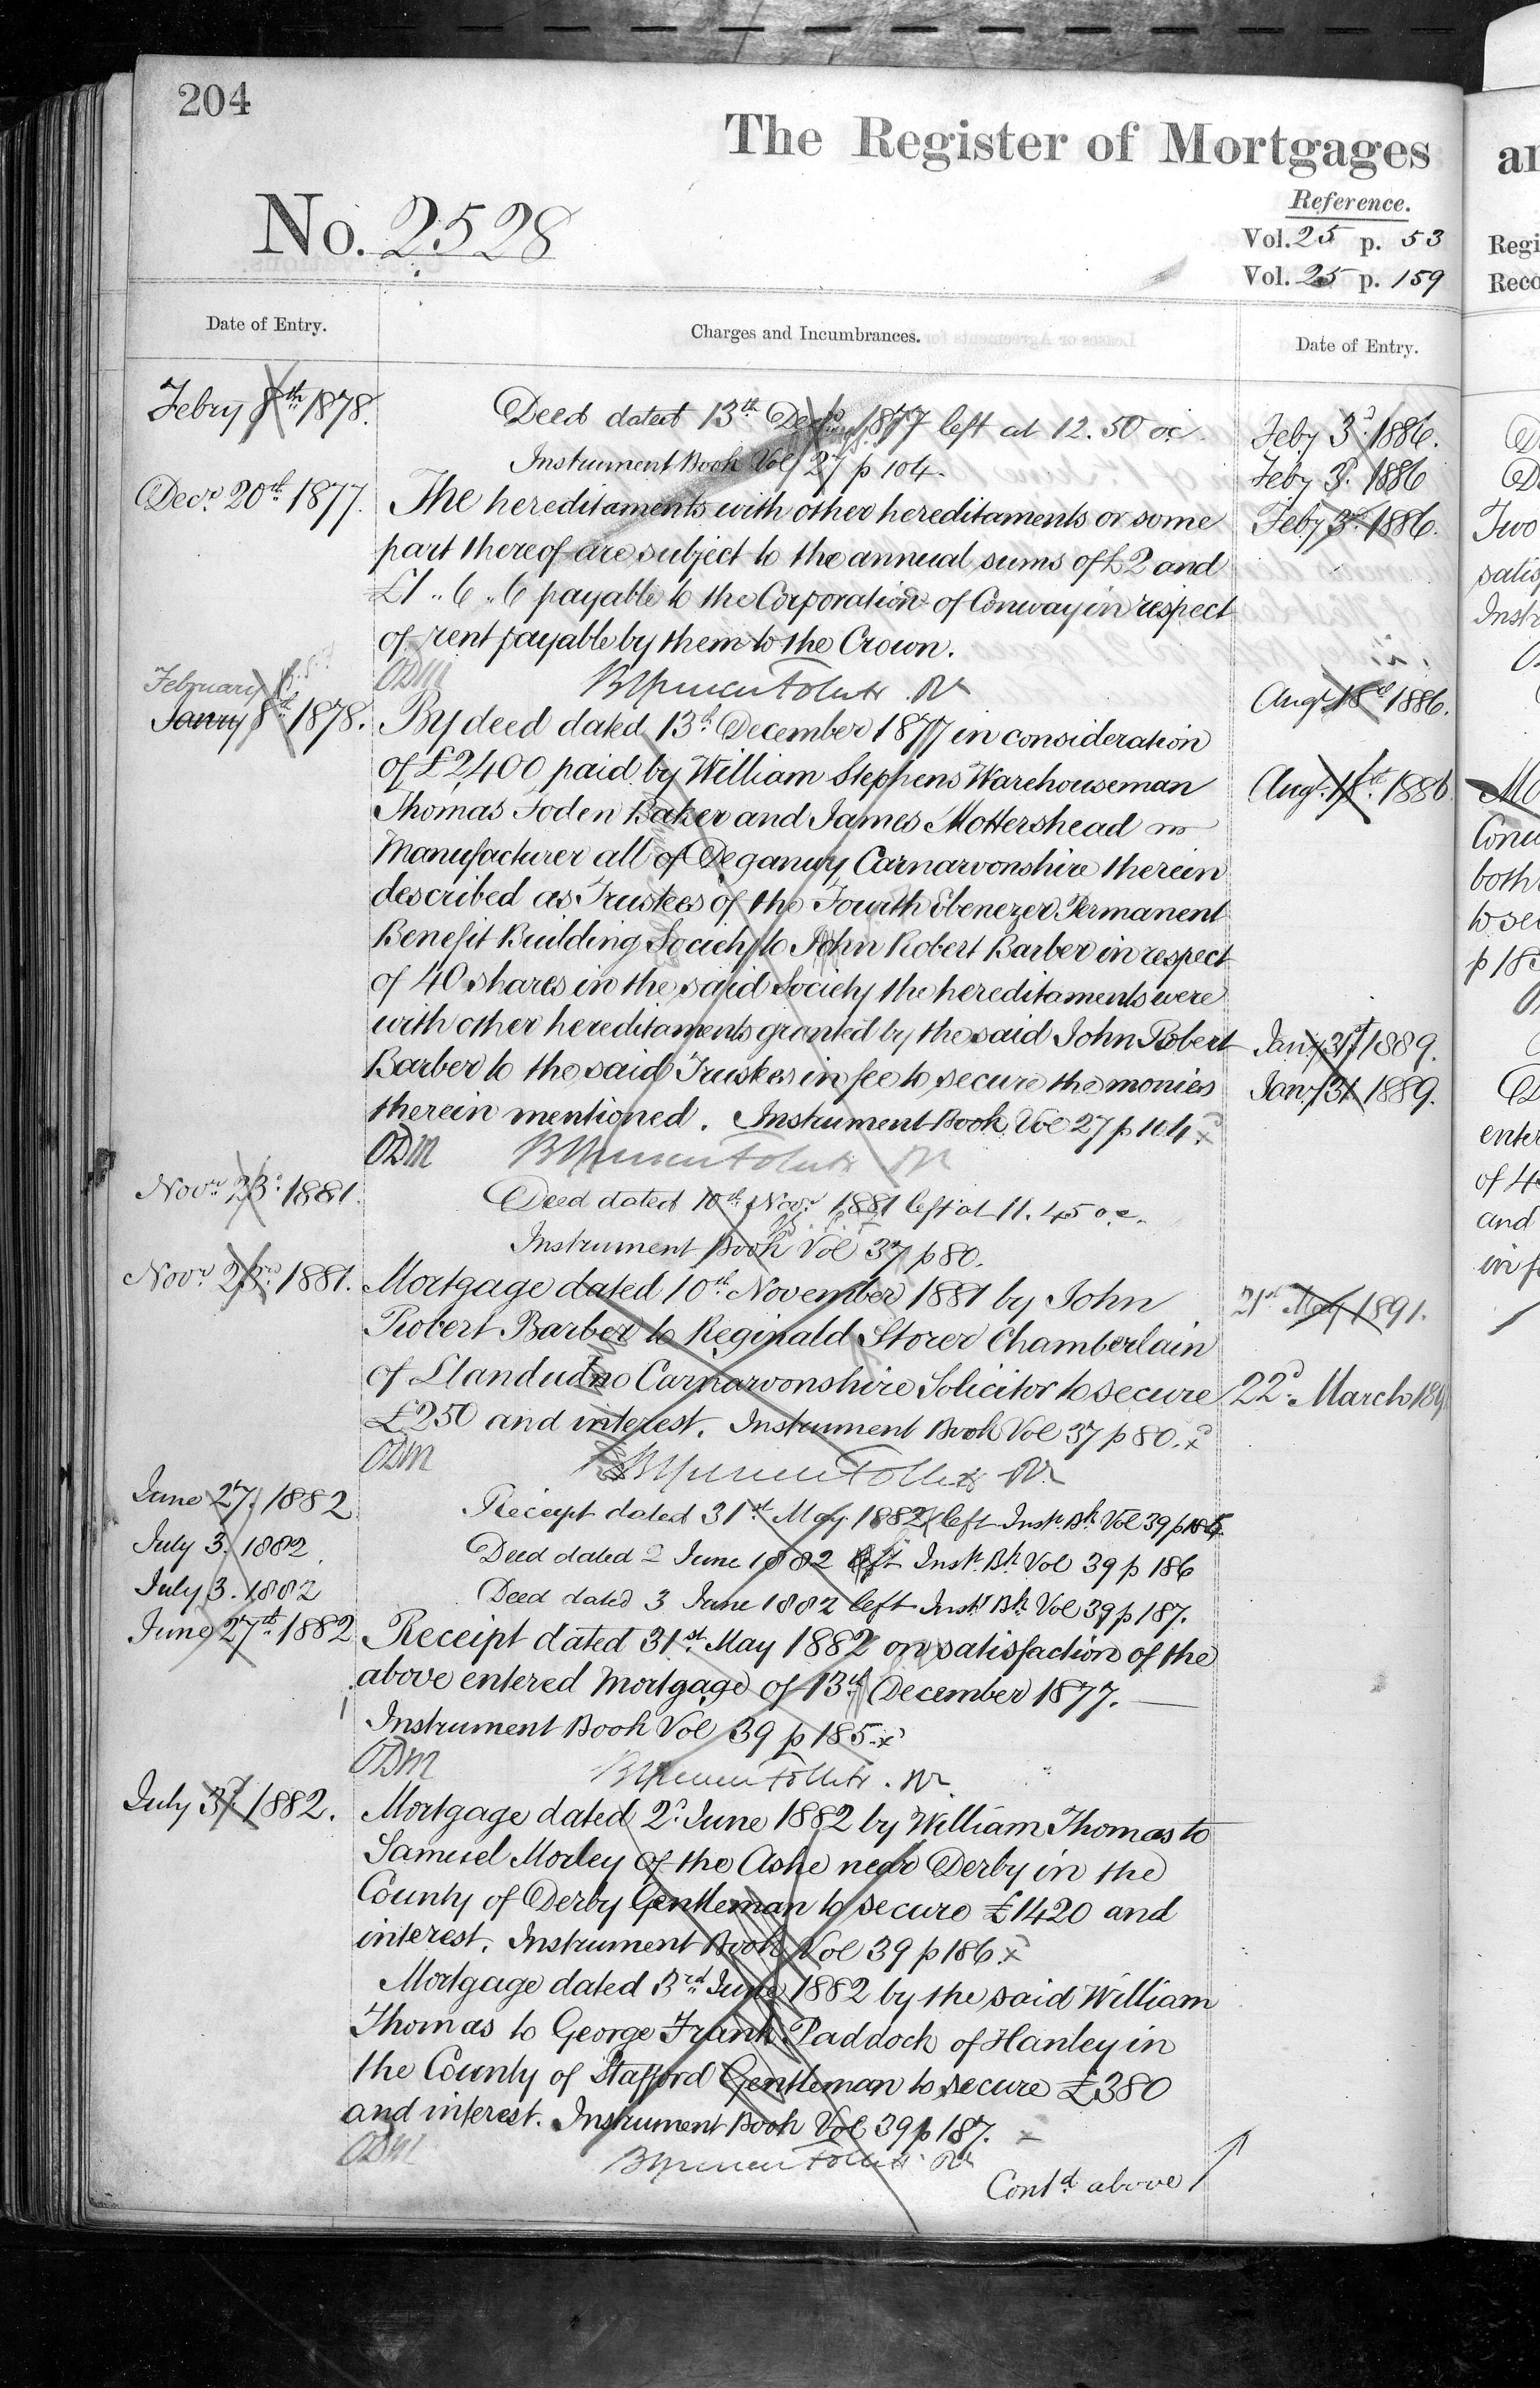 204
The Register of Mortgages
No. 2528
Reference.
Vol. 25 p. 53
Vol. 25 p. 159
Date of Entry.
Charges and Incumbrances.
Date of Entry.
Febry 8th 1878.
Deed dated 13th Decr 1877 left at 12.50 oc.
Instrument Book Vol 27 p 104.
Decr. 20th 1877.
The hereditaments with other hereditaments or some
part thereof are subject to the annual sums of £2 and
£1 .. 6 .. 6 payable to the Corporation of Conway in respect
of rent payable by them to the Crown.
ODM
February
Janry 8th 1878.
By deed dated 13th December 1877 in consideration
of £2400 paid by William Stephens Warehouseman
Thomas Foden Baker and James Mottershead
Manufacturer all of Deganwy Carnarvonshire therein
described as Trustees of the Fourth Ebenezer Permanent
Benefit Building Society to John Robert Barber in respect
of 40 shares in the said Society the hereditaments were
with other hereditaments granted by the said John Robert
Barber to the said Trustees in fee to secure the monies
therein mentioned. Instrument Book Vol 27 p 104. x
ODM
Novr. 23d. 1881.
Deed dated 10th Novr 1881 left at 11.45 o.c.
Instrument Book Vol 37 p 80.
Novr. 23rd. 1881.
Mortgage dated 10th November 1881 by John
Robert Barber to Reginald Storer Chamberlain
of Llandudno Carnarvonshire Solicitor to secure
£250 and interest. Instrument Book Vol 37 p 80. x
ODM
June 27. 1882
Receipt dated 31st May 1882 left Instr. Bk. Vol 39 p 185
July 3. 1882
Deed dated 2 June 1882 left Instr. Bk. Vol 39 p 186
July 3. 1882
Deed dated 3 June 1882 left Instr Bk. Vol 39 p 187.
June 27th 1882
Receipt dated 31st May 1882 on satisfaction of the
above entered Mortgage of 13th December 1877.
Instrument Book Vol 39 p 185. x
ODM
July 3d. 1882.
Mortgage dated 2d June 1882 by William Thomas to
Samuel Morley of the Ashe near Derby in the
County of Derby Gentleman to secure £1420 and
interest. Instrument Book Vol 39 p 186. x
Mortgage dated 3rd June 1882 by the said William
Thomas to George Frank Paddock of Hanley in
the County of Stafford Gentleman to secure £380
and interest. Instrument Book Vol 39 p 187. x
ODM
Contd. above
Feby 3d. 1886.
Feby 3d. 1886
Feby 3d. 1886.
Augt 18th 1886.
Augt. 18th. 1886
Jany 31st 1889.
Jany 31 1889.
21st May 1891.
22d. March 189